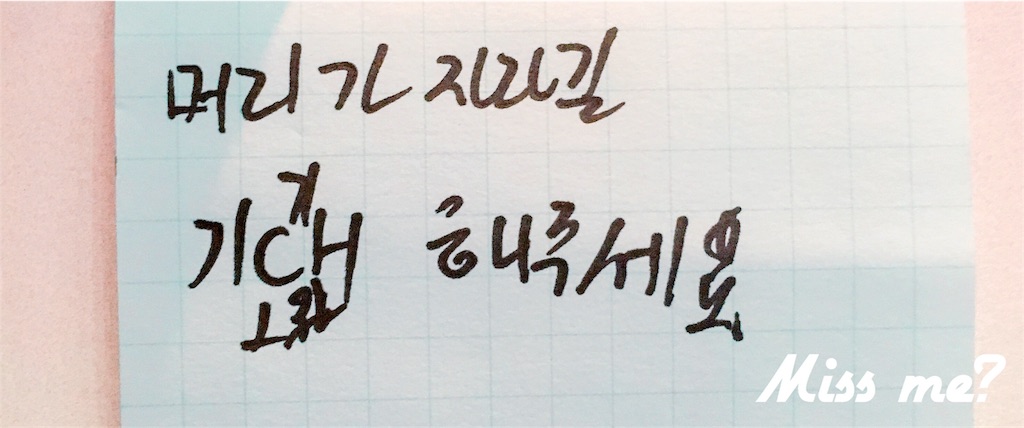 머리가 자라길
해주세요
Miss me?